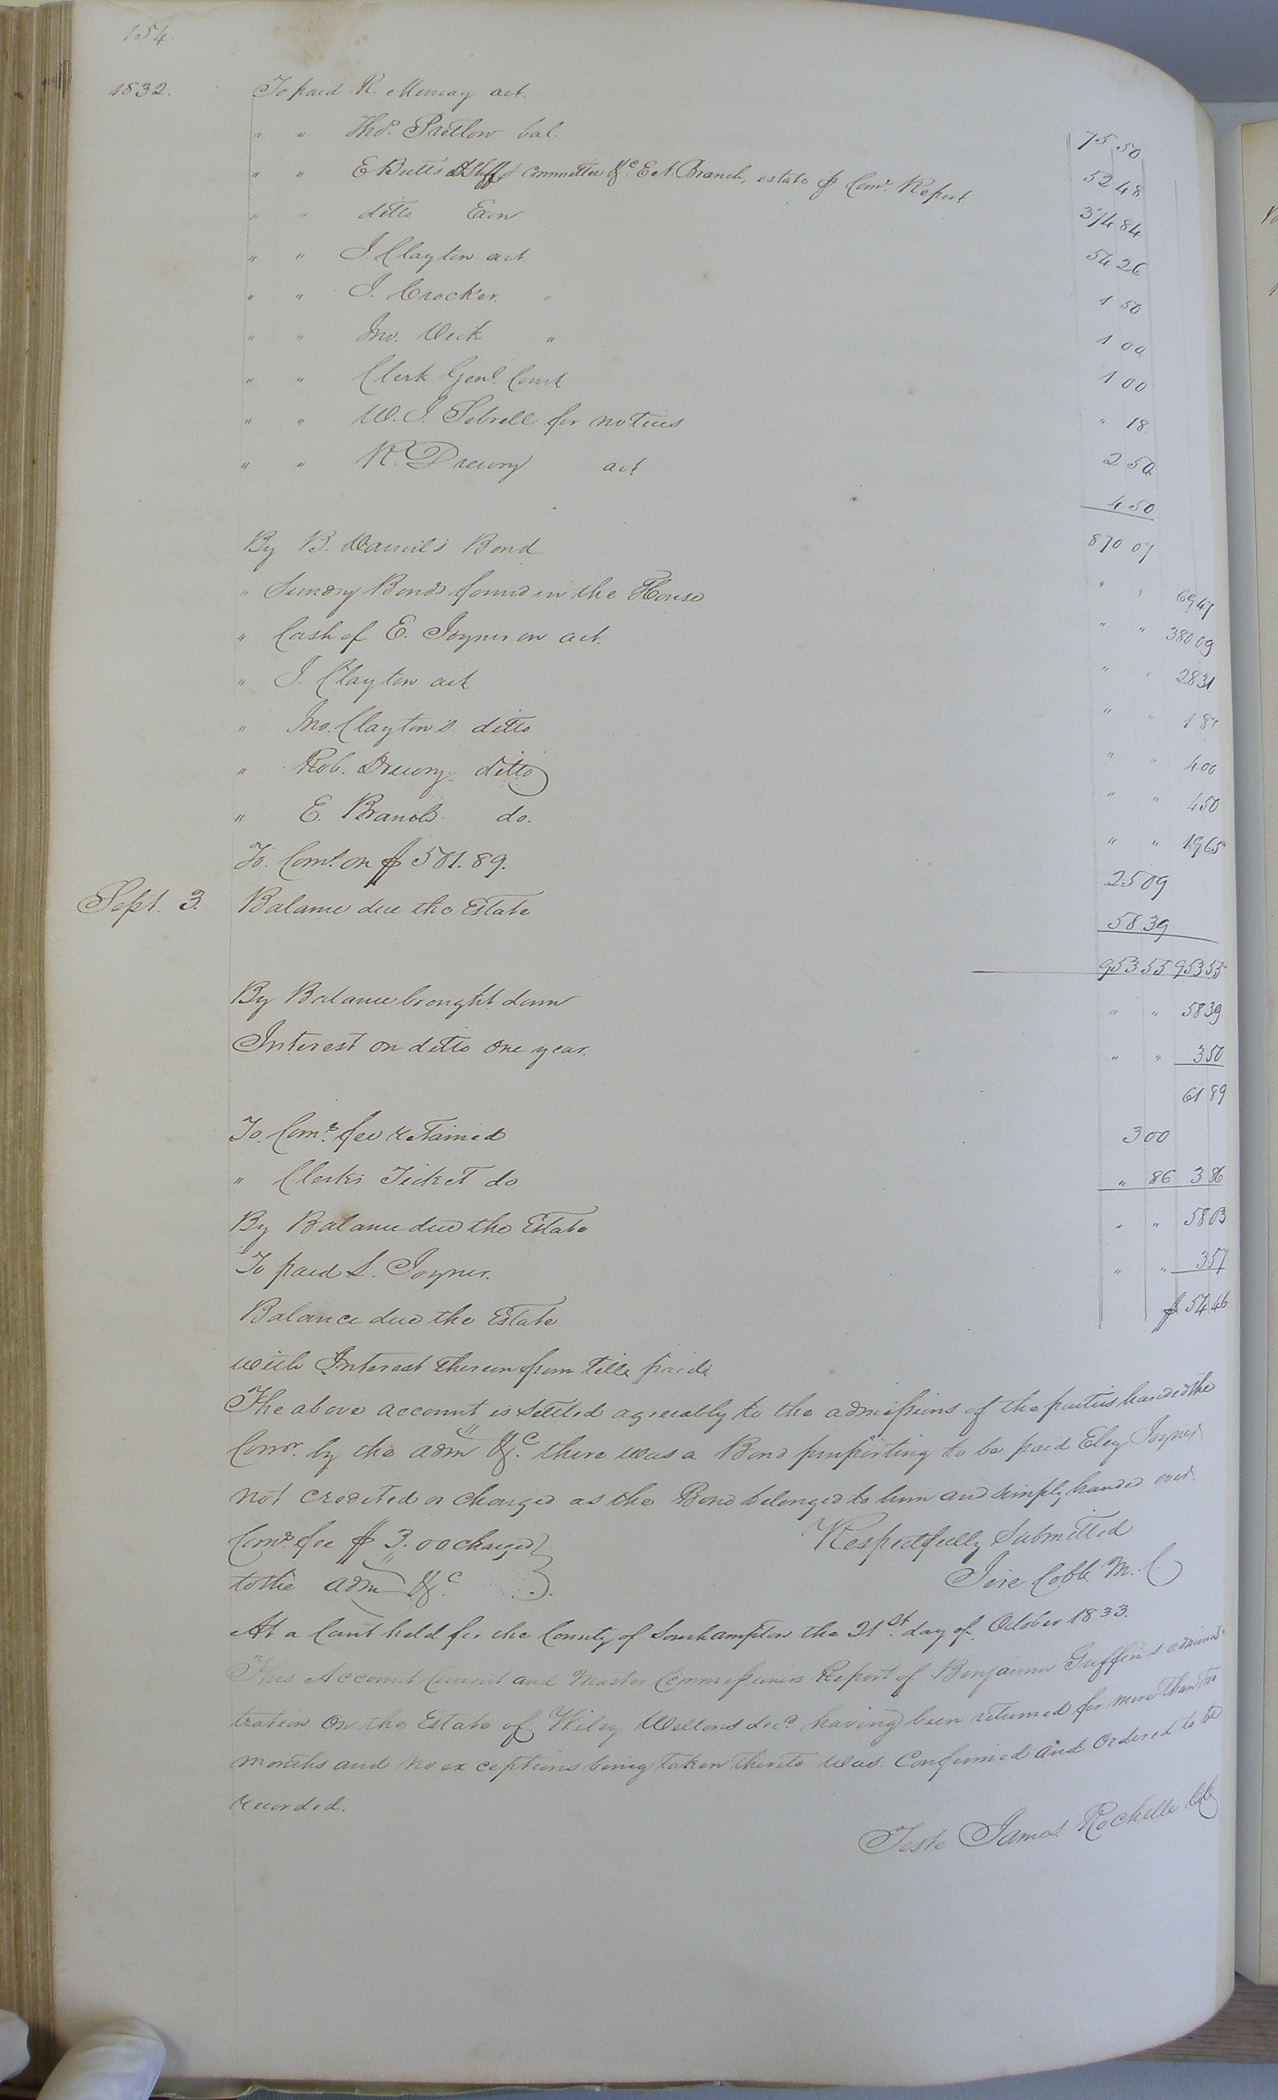 154.
1832. To paid R. Murray act. 75 50
" " Thos. Pretlow bal. 52 48
" " E Butts Shff & Committee &c. E N Branch, estate pr Comr. Report 374 84
" " ditto Exon 54 26
" " J. Clayton act 1 50
" " J. Crocker. " 1 00
" " Jno. " 1 00
" " Clerk Genl. Court " 18
" " W. J. Sebrell for notices 2 50
" " R. Drewry act 4 50
870 07
By B. Daniels Bond " " 69 47
" Sundry Bonds found in the House " " 380 09
" Cash of E. Joyner on act. " " 28 31
" J. Clayton act. " " 1 87
" Jno. Clayton's ditto " " 4 00
" Rob. Drewry ditto " " 4 50
" E. Branch do. " " 19 65
To Coms. on $501.89. 25 09
Sept. 3. Balance due the Estate 58 39
953 55 953 55
By Balance brought down " " 58 39
Interest on ditto one year. " " 3 50
61 89
To Comrs. fee retained 3 00
" Clerks Ticket do " 86 3 86
By Balance due the Estate " " 58 03
To paid L. Joyner. " " 3 57
Balance due the Estate $ 54 46
with Interest thereon from till paid
The above account is settled agreeably to the admissions of the parties handed the
Comr. by the adm &c. there was a Bond purporting to be paid Eley Joyner
not credited or charged as the Bond belonged to him and simply handed over
Comrs. fee $3.00 charged Respectfully Submitted
to the adm &c. Jere Cobb M. C
At a Court held for the County of Southampton the 21st. day of October 1833.
This Account Current and Master Commissioners Report of Benjamin Griffin's adminis-
tration on the Estate of Wiley Wellons decd. having been returned for more than two
months and no exceptions being taken thereto was Confirmed and Ordered to be
recorded.
Teste James Rochelle Clk